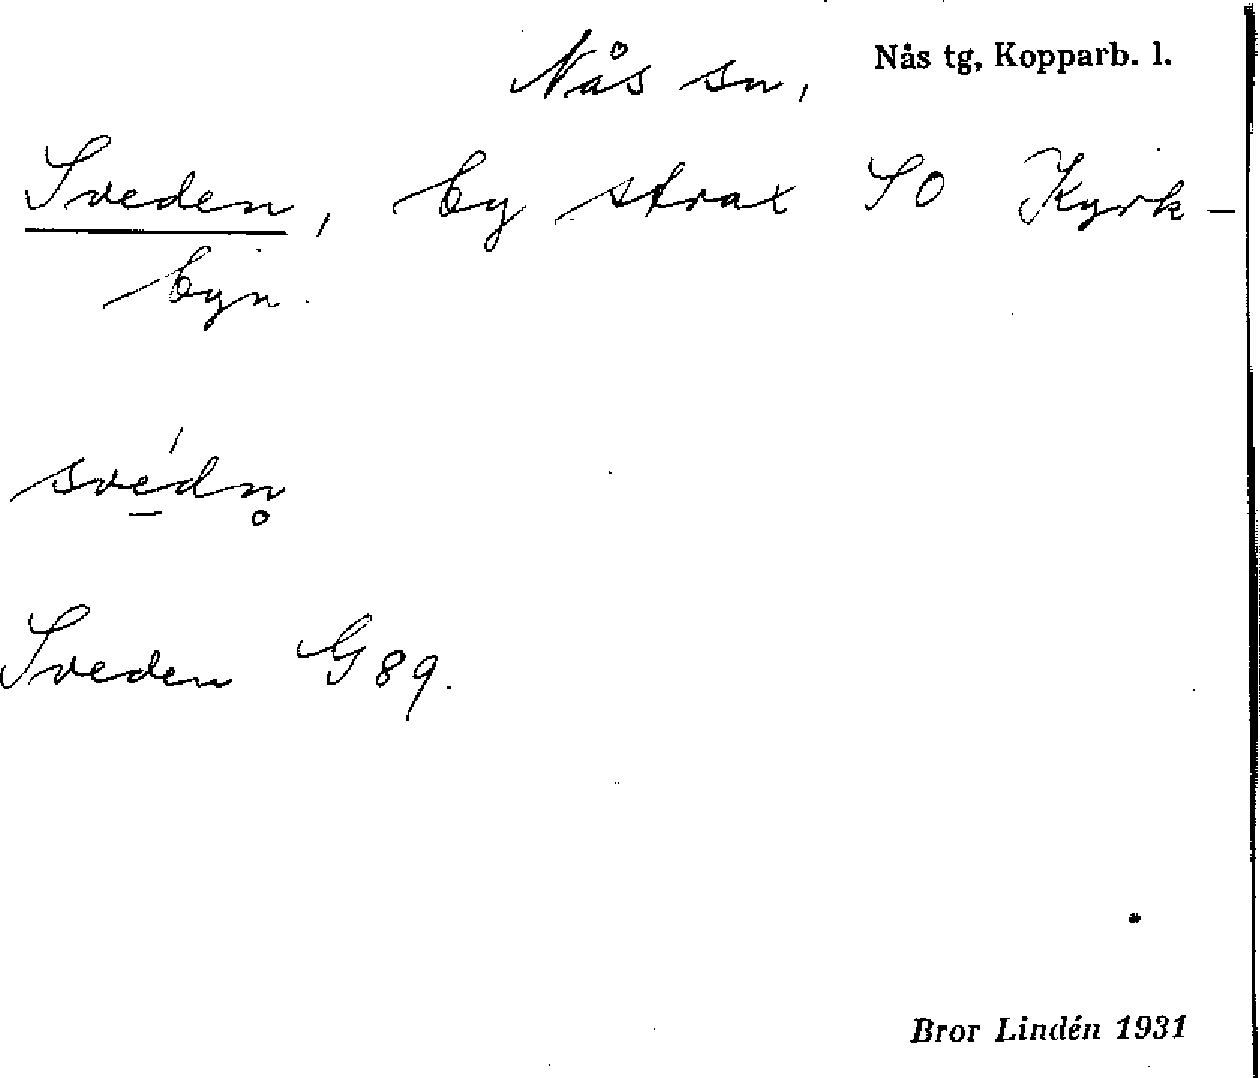 Nås sn, Nås tg, Kopparb. l.
Sveden, by strax SO Kyrk-
byn.
své̱dn̥
Sveden G 89.
Bror Lindén 1931